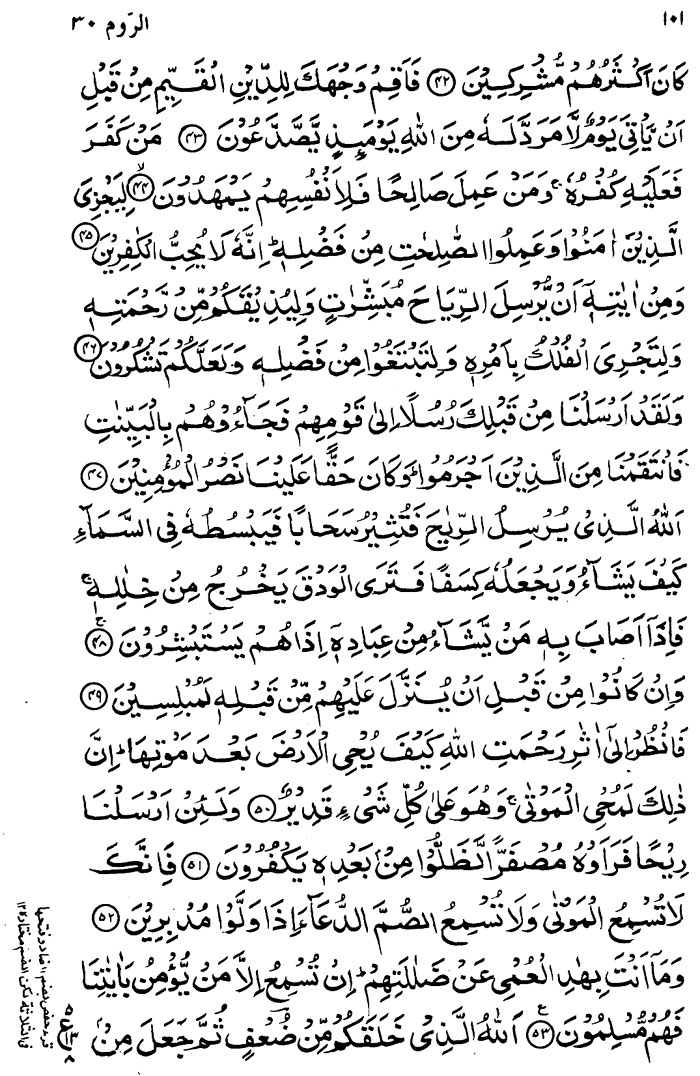 ١٠١
الرّوم ٣٠
كَانَ اَكْثَرُهُمْ مُّشْرِكِيْنَ ۴۲ فَاَقِمْ وَجْهَكَ لِلدِّيْنِ الْقَيِّمِ مِنْ قَبْلِ
اَنْ يَّاْتِيَ يَوْمٌ لَّا مَرَدَّ لَهٗ مِنَ اللهِ يَوْمَىِٕذٍ يَّصَّدَّعُوْنَ ۴۳ مَنْ كَفَرَ
فَعَلَيْهِ كُفْرُهٗ ۚ وَمَنْ عَمِلَ صَالِحًا فَلِاَنْفُسِهِمْ يَمْهَدُوْنَ ۙ ۴۴ لِيَجْزِيَ
الَّذِيْنَ اٰمَنُوْا وَعَمِلُوا الصّٰلِحٰتِ مِنْ فَضْلِهٖ ؕ اِنَّهٗ لَا يُحِبُّ الْكٰفِرِيْنَ ۴۵
وَمِنْ اٰيٰتِهٖۤ اَنْ يُّرْسِلَ الرِّيَاحَ مُبَشِّرٰتٍ وَّلِيُذِيْقَكُمْ مِّنْ رَّحْمَتِهٖ
وَلِتَجْرِيَ الْفُلْكُ بِاَمْرِهٖ وَلِتَبْتَغُوْا مِنْ فَضْلِهٖ وَلَعَلَّكُمْ تَشْكُرُوْنَ ۴۶
وَلَقَدْ اَرْسَلْنَا مِنْ قَبْلِكَ رُسُلًا اِلٰى قَوْمِهِمْ فَجَآءُوْهُمْ بِالْبَيِّنٰتِ
فَانْتَقَمْنَا مِنَ الَّذِيْنَ اَجْرَمُوْا ؕ وَكَانَ حَقًّا عَلَيْنَا نَصْرُ الْمُؤْمِنِيْنَ ۴۷
اَللهُ الَّذِيْ يُرْسِلُ الرِّيٰحَ فَتُثِيْرُ سَحَابًا فَيَبْسُطُهٗ فِي السَّمَآءِ
كَيْفَ يَشَآءُ وَيَجْعَلُهٗ كِسَفًا فَتَرَى الْوَدْقَ يَخْرُجُ مِنْ خِلٰلِهٖ ۚ
فَاِذَاۤ اَصَابَ بِهٖ مَنْ يَّشَآءُ مِنْ عِبَادِهٖۤ اِذَا هُمْ يَسْتَبْشِرُوْنَ ۚ ۴۸
وَاِنْ كَانُوْا مِنْ قَبْلِ اَنْ يُّنَزَّلَ عَلَيْهِمْ مِّنْ قَبْلِهٖ لَمُبْلِسِيْنَ ۴۹
فَانْظُرْ اِلٰۤى اٰثٰرِ رَحْمَتِ اللهِ كَيْفَ يُحْيِ الْاَرْضَ بَعْدَ مَوْتِهَا ؕ اِنَّ
ذٰلِكَ لَمُحْيِ الْمَوْتٰى ۚ وَهُوَ عَلٰى كُلِّ شَيْءٍ قَدِيْرٌ ۵۰ وَلَىِٕنْ اَرْسَلْنَا
رِيْحًا فَرَاَوْهُ مُصْفَرًّا لَّظَلُّوْا مِنْۢ بَعْدِهٖ يَكْفُرُوْنَ ۵۱ فَاِنَّكَ
لَا تُسْمِعُ الْمَوْتٰى وَلَا تُسْمِعُ الصُّمَّ الدُّعَآءَ اِذَا وَلَّوْا مُدْبِرِيْنَ ۵۲
وَمَاۤ اَنْتَ بِهٰدِ الْعُمْيِ عَنْ ضَلٰلَتِهِمْ ؕ اِنْ تُسْمِعُ اِلَّا مَنْ يُّؤْمِنُ بِاٰيٰتِنَا
فَهُمْ مُّسْلِمُوْنَ ۵۳ ع اَللهُ الَّذِيْ خَلَقَكُمْ مِّنْ ضُعْفٍ ثُمَّ جَعَلَ مِنْۢ